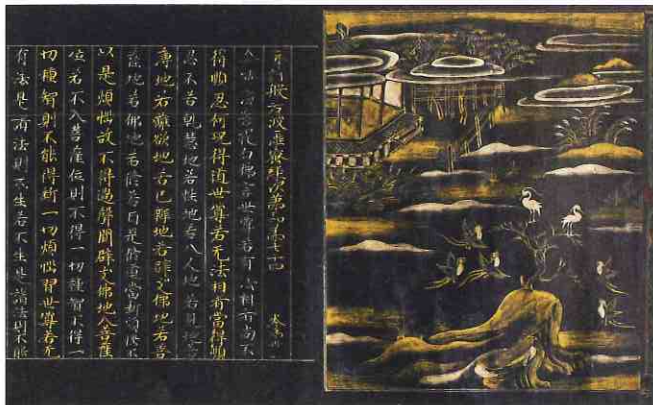 般若波羅蜜經次第品第七十四
須菩提白佛言世尊若有法相者尚不
得順忍何況得道世尊若无法相者當得順
忍不若乹慧地若性地若八人地若見地若
薄地若離欲地若已辦地若辟支佛地若菩
薩地若佛地若修道因是修道當斷煩惱不
以是煩惱故不得過聲聞辟支佛地入菩薩
位若不入菩薩位則不得一切種智不得一
切種智則不能得斷一切煩惱習世尊若无
有法是諸法則不生若不生是諸法則不能